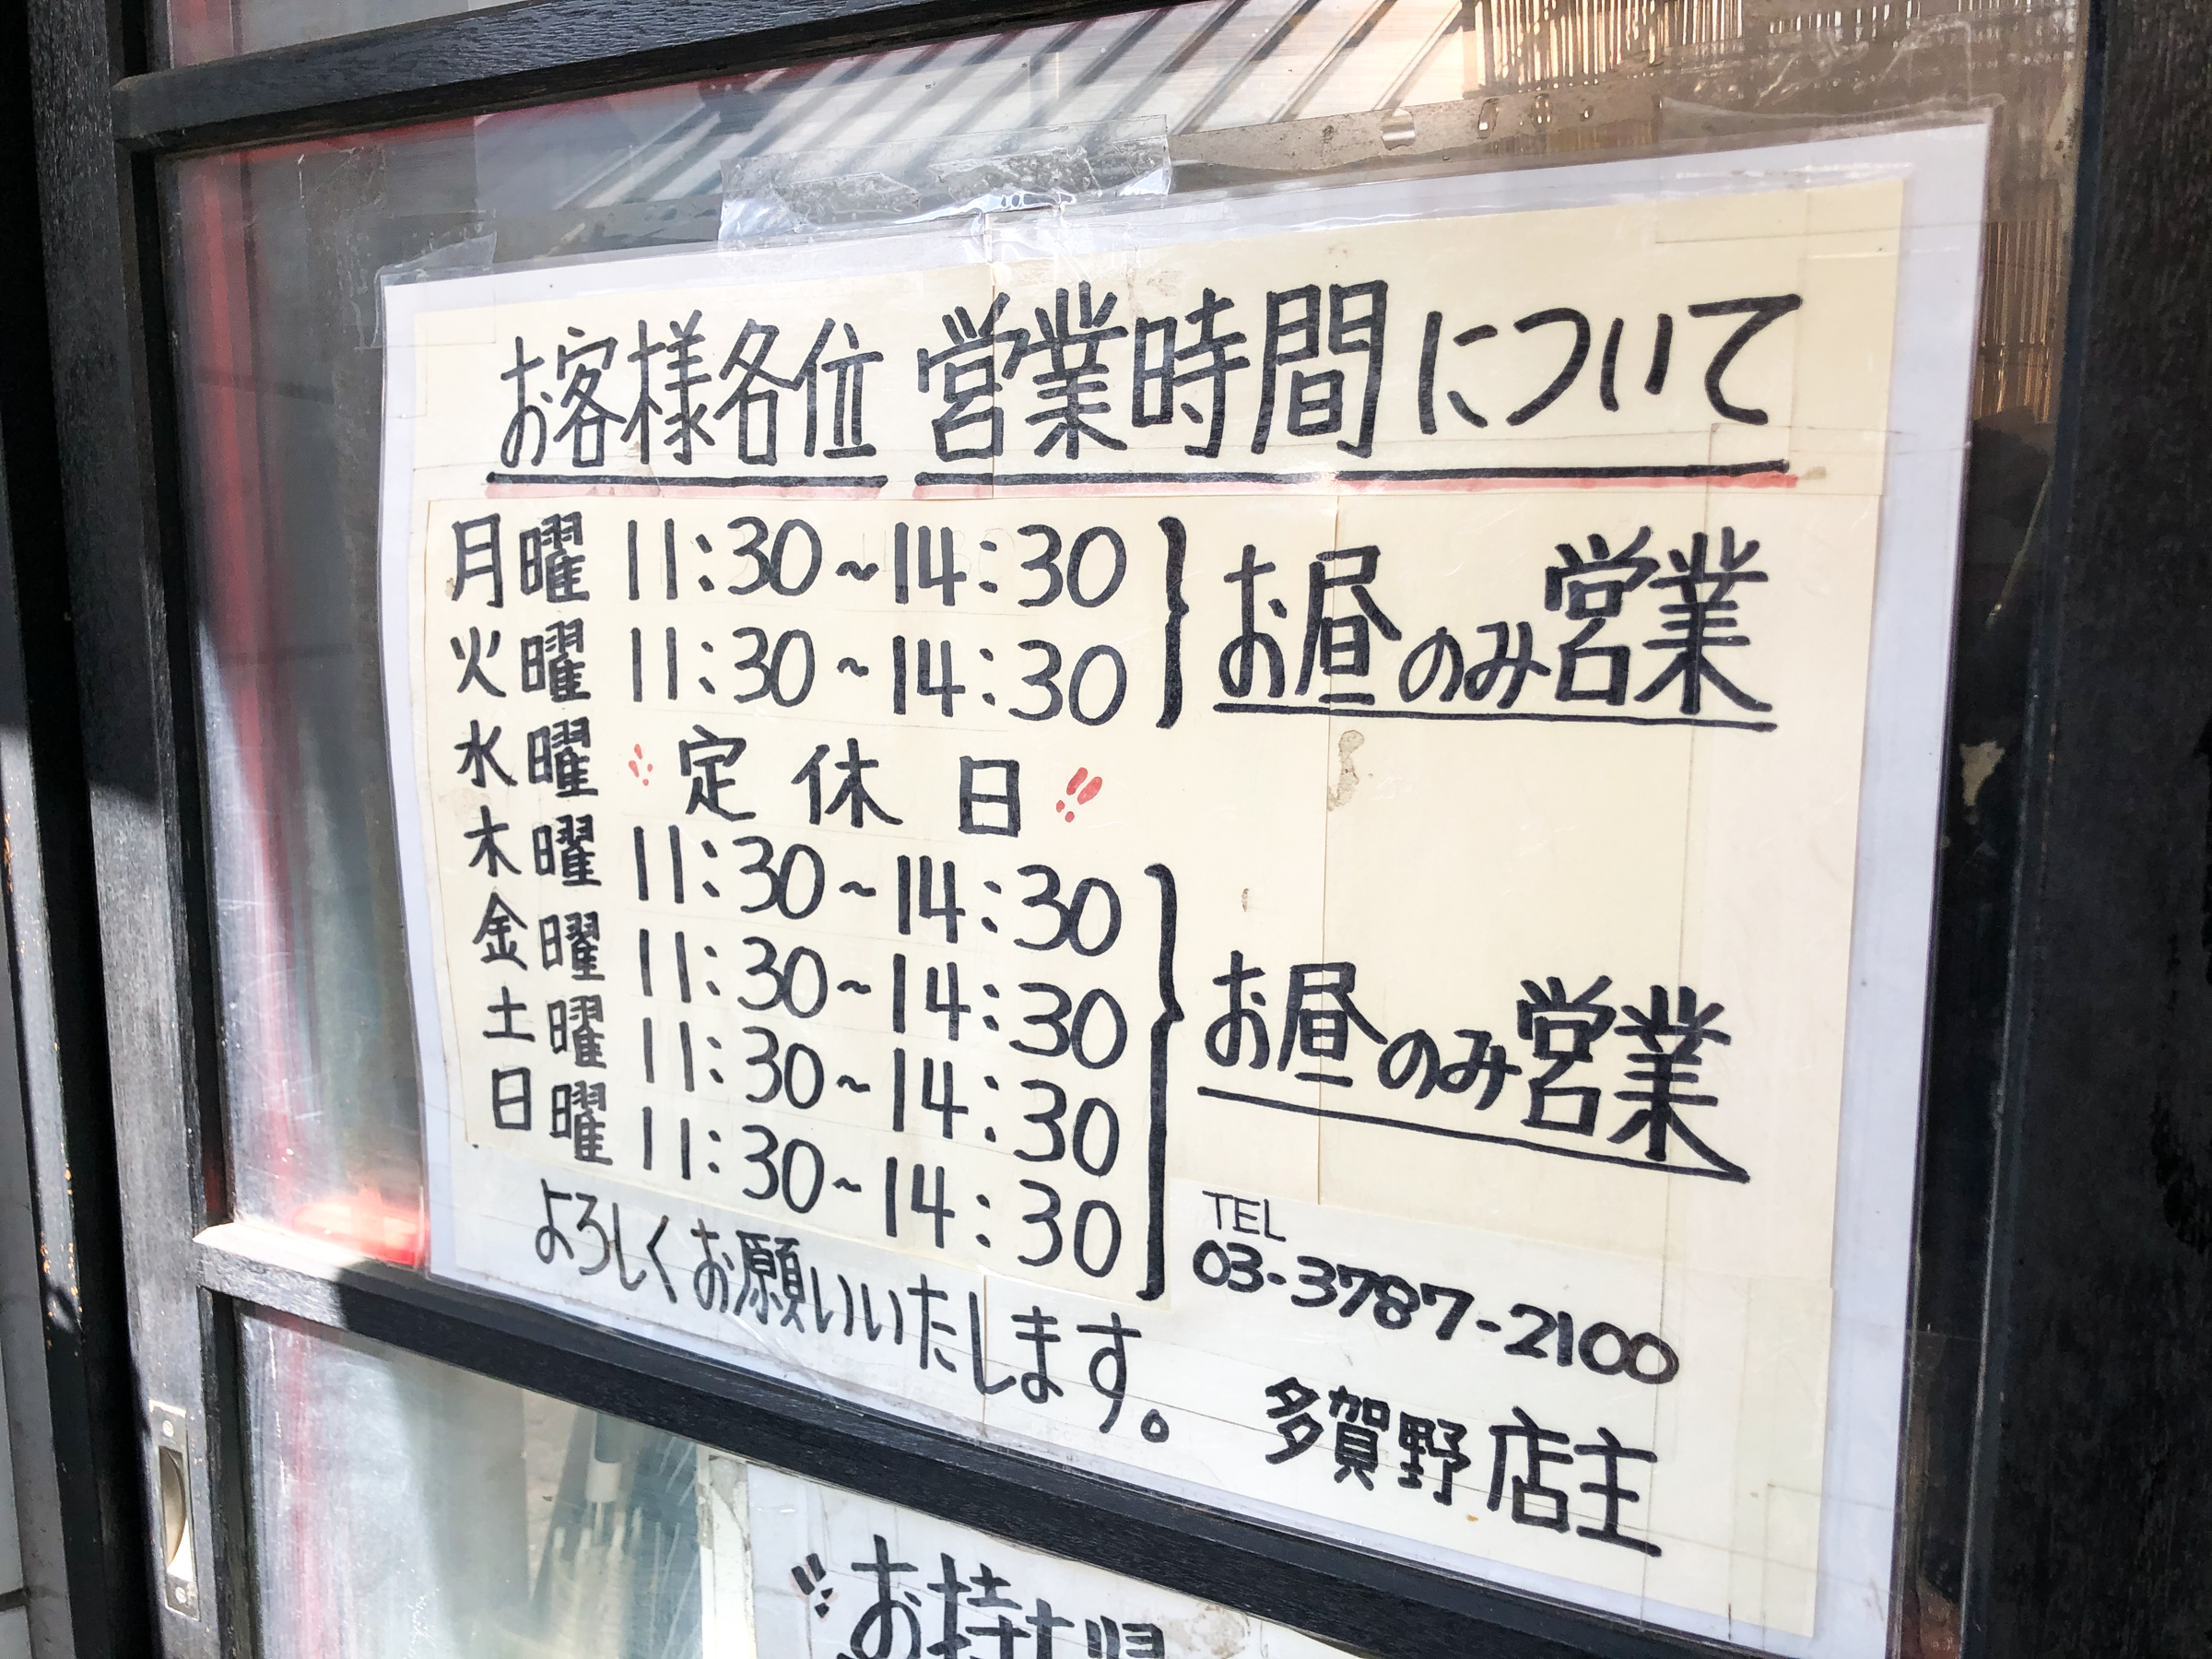 お客様各位 営業時間について
月曜 11:30～14:30
火曜 11:30～14:30
お昼のみ営業
水曜 定休日
木曜 11:30～14:30
金曜 11:30～14:30
土曜 11:30～14:30
日曜 11:30～14:30
お昼のみ営業
よろしくお願いいたします。
TEL
03-3787-2100
多賀野 店主
お持ち帰